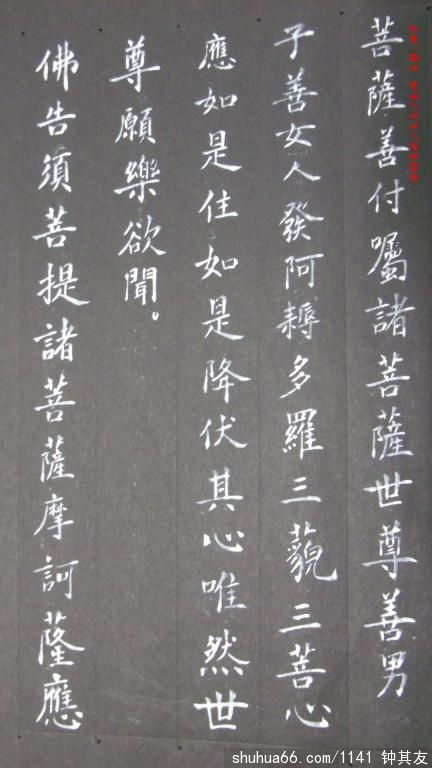 菩薩善付囑諸菩薩世尊善男
子善女人發阿耨多羅三藐三菩心
應如是住如是降伏其心唯然世
尊願樂欲聞。
佛告須菩提諸菩薩摩訶薩應
shuhua66.com/1141 钟其友